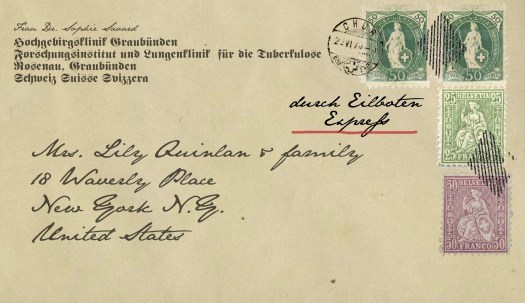 Frau Dr. Sophie Savard
Hochgebirgsklinik Graubünden
Forschungsinstitut und Lungenklinik für die Tuberkulose
Rosenau, Graubünden
Schweiz Suisse Svizzera
CHUR
50 50
50
50 50
50
durch Eilboten
Expreß
25 HELVETIA 25
25 FRANCO 25
Mrs. Lily Quinlan & family
18 Waverly Place
New York N.Y.
United States
50 HELVETIA 50
50 FRANCO 50